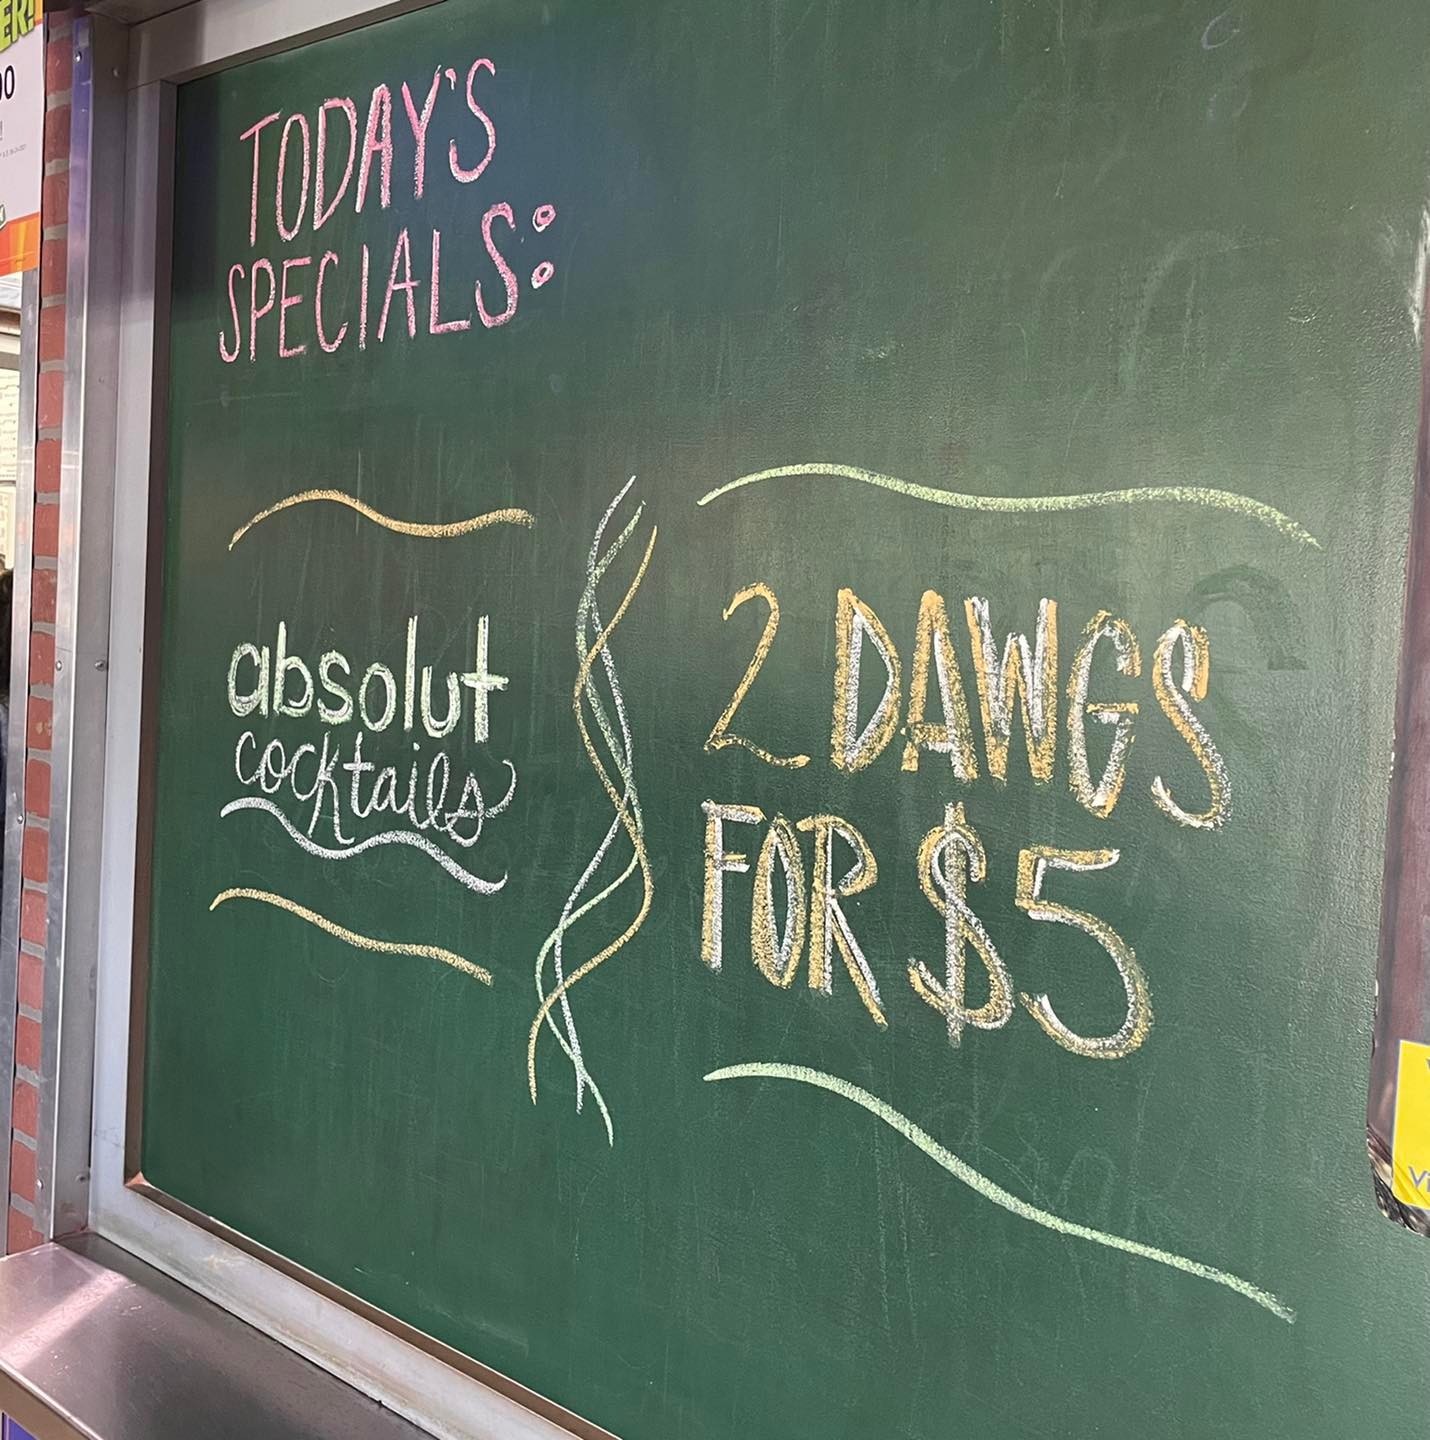 TODAY'S
SPECIALS:
absolut
cocktails
2 DAWGS
FOR $5